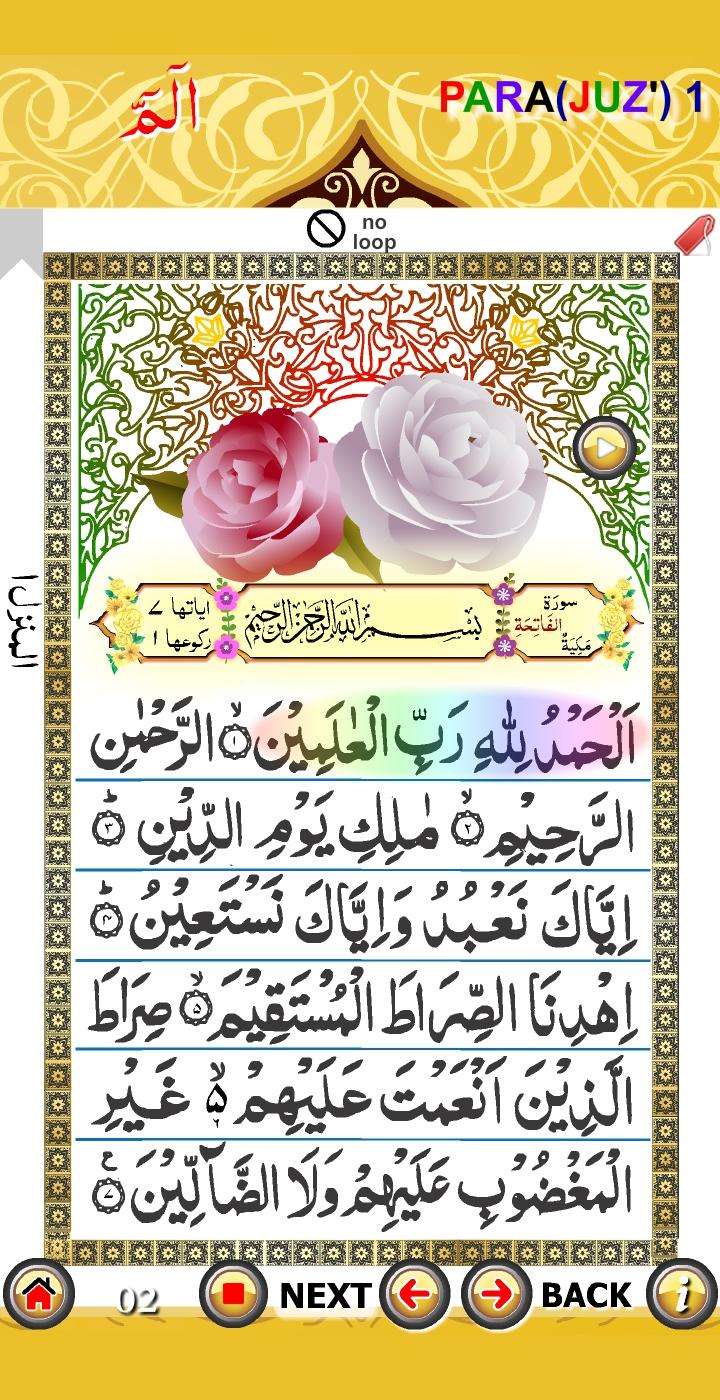 الٓمّٓ PARA(JUZ') 1
no
loop
المنزل ١
سورة الفاتحة مكية
بسم الله الرحمن الرحيم
اياتها ٧
ركوعها ١
اَلْحَمْدُ لِلّٰهِ رَبِّ الْعٰلَمِيْنَ ۙ﴿۱﴾ الرَّحْمٰنِ
الرَّحِيْمِ ۙ﴿۲﴾ مٰلِكِ يَوْمِ الدِّيْنِ ؕ﴿۳﴾
اِيَّاكَ نَعْبُدُ وَاِيَّاكَ نَسْتَعِيْنُ ؕ﴿۴﴾
اِهْدِنَا الصِّرَاطَ الْمُسْتَقِيْمَ ۙ﴿۵﴾ صِرَاطَ
الَّذِيْنَ اَنْعَمْتَ عَلَيْهِمْ ۙ۵ غَيْرِ
الْمَغْضُوْبِ عَلَيْهِمْ وَلَا الضَّآلِّيْنَ ﴿۷﴾ ع
02 NEXT BACK i